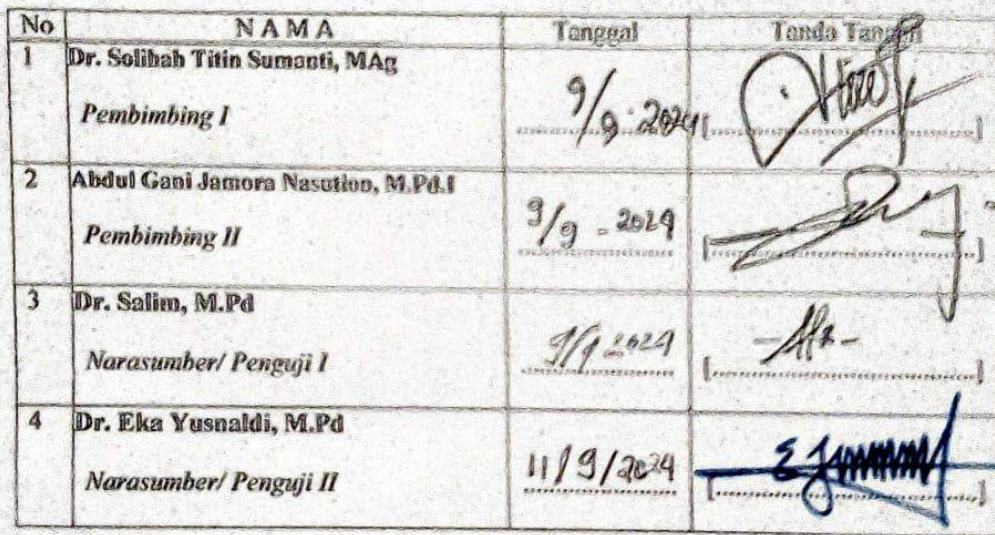 No NAMA Tanggal Tanda Tangan
1 Dr. Solihah Titin Sumanti, MAg
Pembimbing I 9/9-2024 [....................]
2 Abdul Gani Jamora Nasution, M.Pd.I
Pembimbing II 9/9-2024 [....................]
3 Dr. Salim, M.Pd
Narasumber/ Penguji I 9/9-2024 [....................]
4 Dr. Eka Yusnaldi, M.Pd
Narasumber/ Penguji II 11/9/2024 [....................]